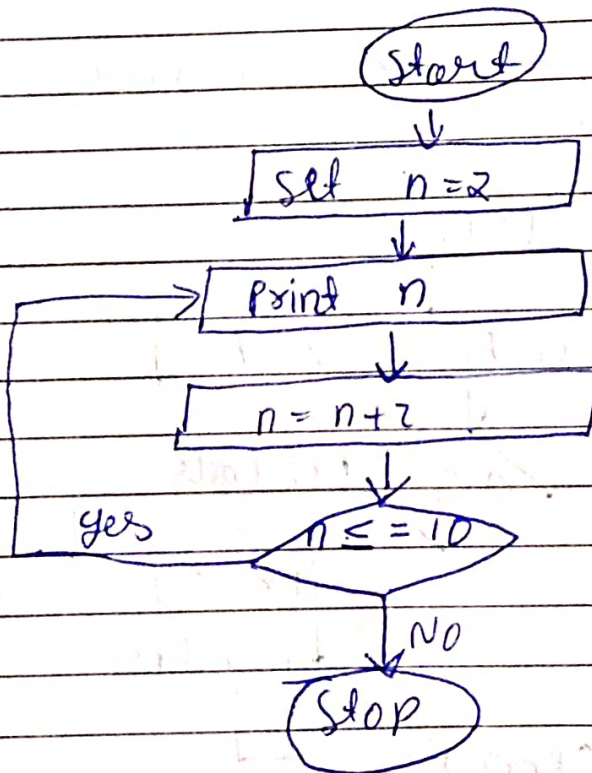 Start
Set n=2
Print n
n = n+2
n <= = 10
yes
NO
Stop